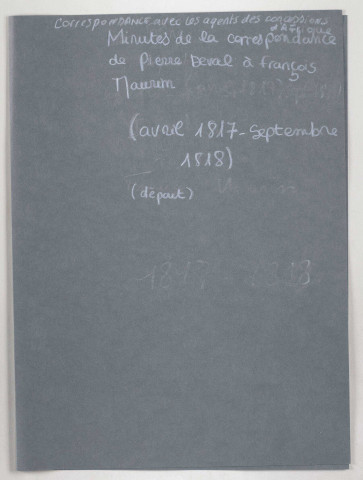 Correspondance avec les agents des concessions
d'Afrique
Minutes de la correspondance
de Pierre Deval à François
Maurin
(avril 1817-septembre
1818)
(départ)
1817 1818